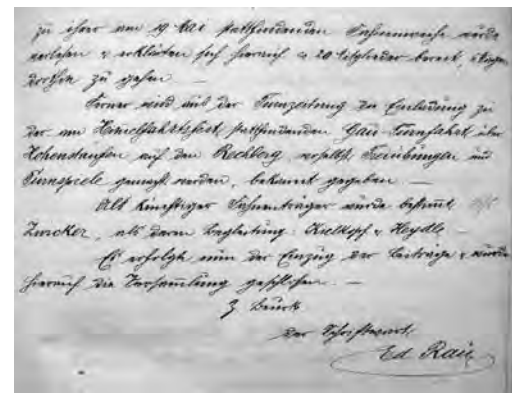 zu ihrer am 19 Mai stattfindenden Fahnenweihe wurde
verlesen & erklärten sich hierauf ca 20 Mitglieder bereit,
dorthin zu gehen —
Ferner wird aus der Turnzeitung die Einladung zu
der am Himelfahrtsfest stattfindenden Gau-Turnfahrt über
Hohenstaufen auf den Rechberg, woselbst Freiübungen und
Turnspiele gemacht werden, bekannt gegeben. —
Als künftiger Fahnenträger wurde bestimt
Zwicker, als deren Begleitung Kielkopf & Heydle. —
Es erfolgte nun der Einzug der Beiträge & wurde
hierauf die Versamlung geschlossen. —
Z Beurk
Der Schriftwart:
Ed Rau